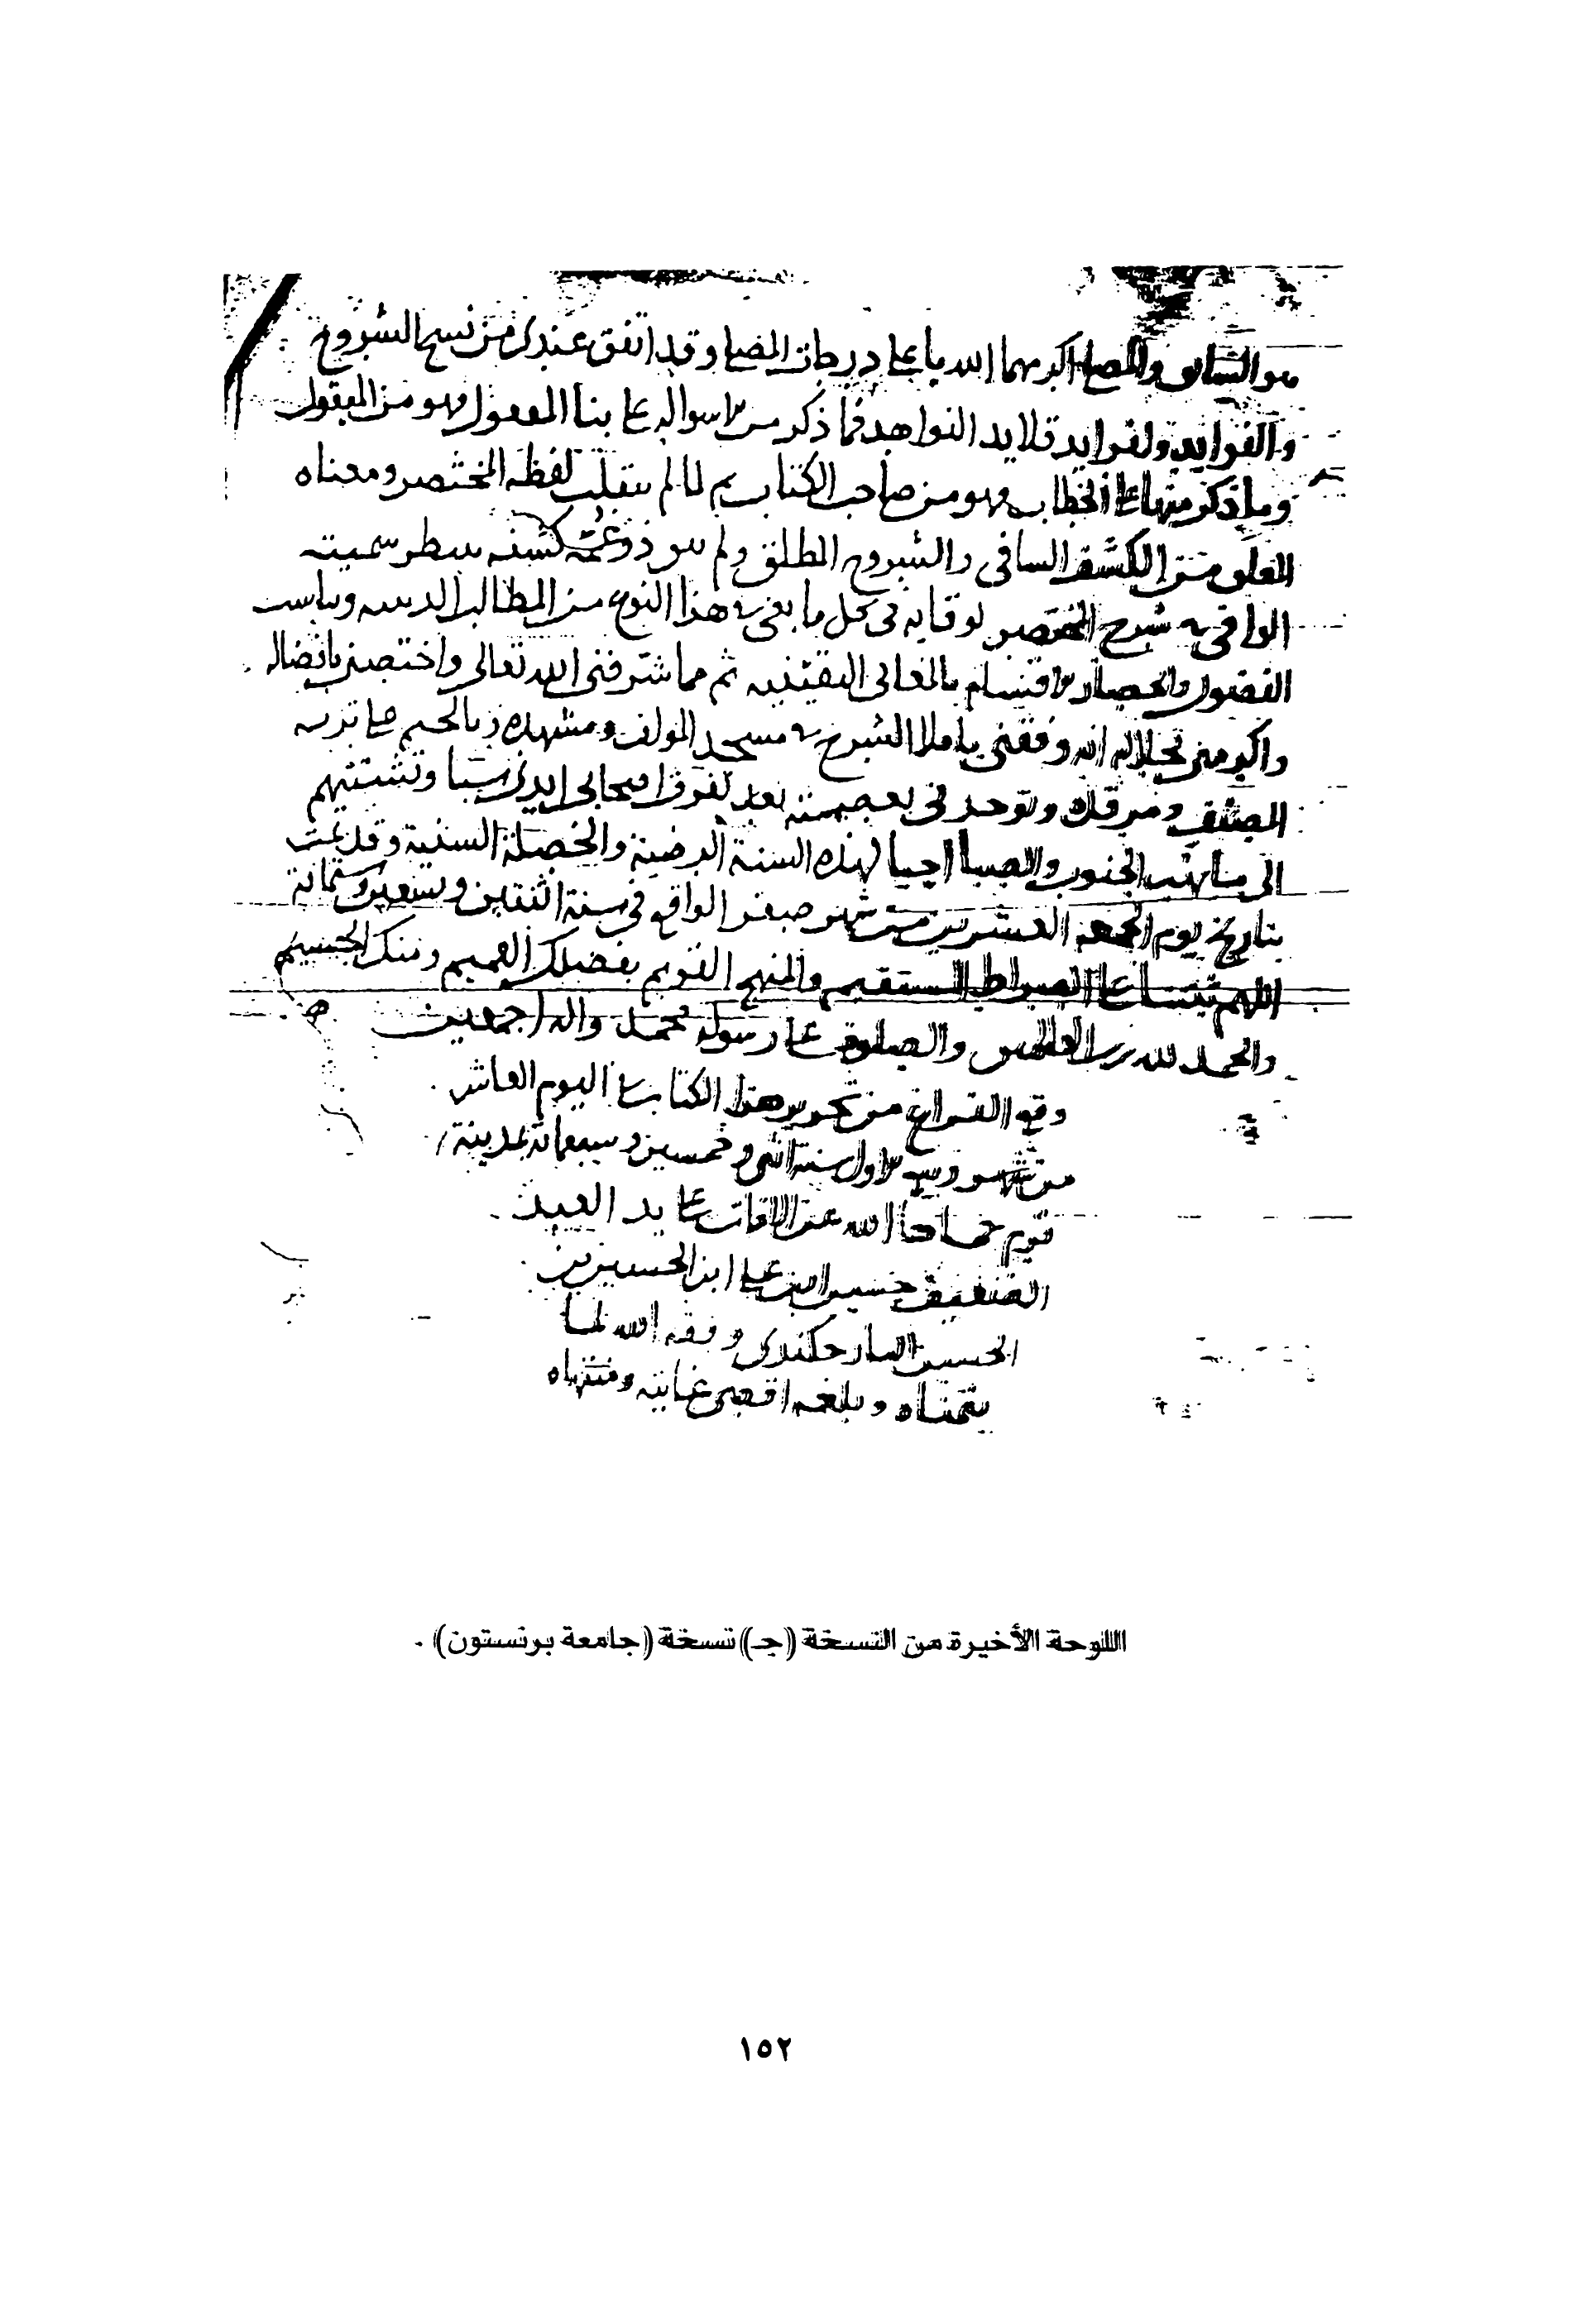 هو السابق والمصلى اكرمهما الله باعلى درجات المصلى وقد اتفق عندى من نسخ الشروح
والفوايد ولفرايد قلايد النواهد فما ذكر من الاسولة على بنا المفعول فهو من المنقول
وما ذكر منها على الخطاب فهو من صاحب الكتاب ثم لما لم ينقلب لفظه المختصر ومعناه
المغلق من الكشف الشافى والشروح المطلق ولم ذو غمة كشفه بسطر سميته
الوافى فى شرح المختصر لوقايه فى كل ما بغى فى هذا النوع من المطالب
الفضول بالمعالى اليقينيه ثم مما شرفنى الله تعالى واختصنى بافضاله
واكرمنى بجلاله انه وفقنى باملا الشرح فى مسجد المولف ومشهده تربه
المصنف ومرقده وتوحد فى بعد تفرق اصحابى ايدى سبا وتشتتهم
الى مهب الجنوب والصبا احيا لهذه السنة المرضية والخصلة السنية وقد تمت
بتاريخ يوم الجمعه العشرين من شهر صفر الواقع فى سنة اثنتين وتسعين وستمائة
اللهم ثبتنا على الصراط المستقيم والمنهج القويم بفضلك العميم ومنك الجسيم
والحمد لله رب العالمين والصلوة على رسوله محمد واله اجمعين
وقع الفراغ من تحرير هذا الكتاب فى اليوم العاشر
من شهر ربيع الاول سنة اثنى وخمسين وسبعمائة بمدينة
قريم حماها الله عن الافات على يد العبد
الضعيف حسين ابن على ابن الحسين بن
الحسين وفقه الله لما
يتمناه وبلغه اقصى غايته ومنتهاه
اللوحة الأخيرة من النسخة (جـ) نسخة (جامعة برنستون) .
١٥٢